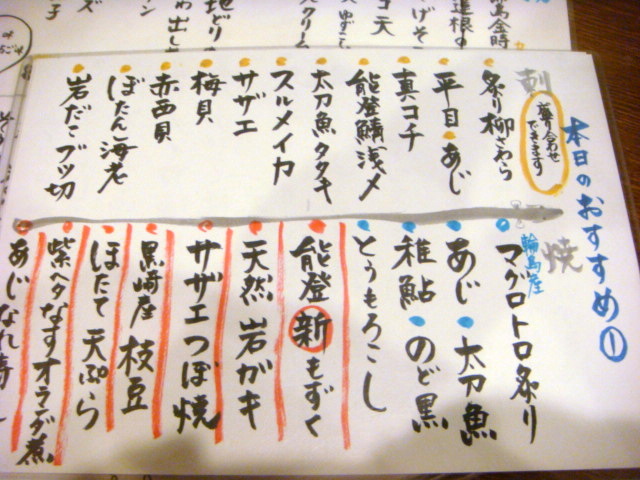 本日のおすすめ①
刺
盛り合わせ
できます
炙り柳さわら
平目・あじ
真コチ
能登鯖浅〆
太刀魚タタキ
スルメイカ
サザエ
梅貝
赤西貝
ぼたん海老
岩だこブツ切
焼
輪島産
マグロトロ炙り
あじ・太刀魚
稚鮎・のど黒
とうもろこし
能登新もずく
天然岩ガキ
サザエつぼ焼
黒崎産枝豆
ほたて天ぷら
紫ヘタなすオランダ煮
あじなれ寿し